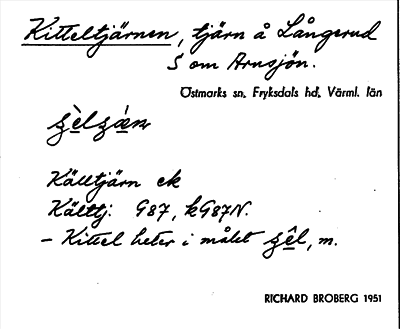 Kitteltjärnen, tjärn å Långerud
S om Arnsjön.
Östmarks sn, Fryksdals hd, Värml. län
Källtjärn ek
Källtj. G87, kG87N.
- Kittel heter i målet m.
RICHARD BROBERG 1951